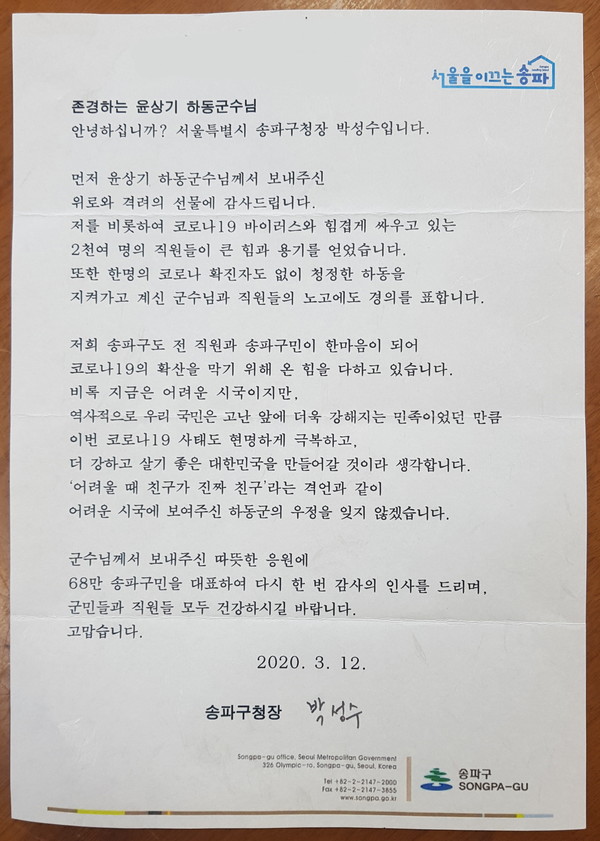 서울을 이끄는 송파
존경하는 윤상기 하동군수님
안녕하십니까? 서울특별시 송파구청장 박성수입니다.
먼저 윤상기 하동군수님께서 보내주신
위로와 격려의 선물에 감사드립니다.
저를 비롯하여 코로나19 바이러스와 힘겹게 싸우고 있는
2천여 명의 직원들이 큰 힘과 용기를 얻었습니다.
또한 한명의 코로나 확진자도 없이 청정한 하동을
지켜가고 계신 군수님과 직원들의 노고에도 경의를 표합니다.
저희 송파구도 전 직원과 송파구민이 한마음이 되어
코로나19의 확산을 막기 위해 온 힘을 다하고 있습니다.
비록 지금은 어려운 시국이지만,
역사적으로 우리 국민은 고난 앞에 더욱 강해지는 민족이었던 만큼
이번 코로나19 사태도 현명하게 극복하고,
더 강하고 살기 좋은 대한민국을 만들어갈 것이라 생각합니다.
'어려울 때 친구가 진짜 친구'라는 격언과 같이
어려운 시국에 보여주신 하동군의 우정을 잊지 않겠습니다.
군수님께서 보내주신 따뜻한 응원에
68만 송파구민을 대표하여 다시 한 번 감사의 인사를 드리며,
군민들과 직원들 모두 건강하시길 바랍니다.
고맙습니다.
2020. 3. 12.
송파구청장 박성수
Songpa-gu office, Seoul Metropolitan Government
326 Olympic-ro, Songpa-gu, Seoul, Korea
Tel +82-2-2147-2000
Fax +82-2-2147-3855
www.songpa.go.kr
송파구
SONGPA-GU